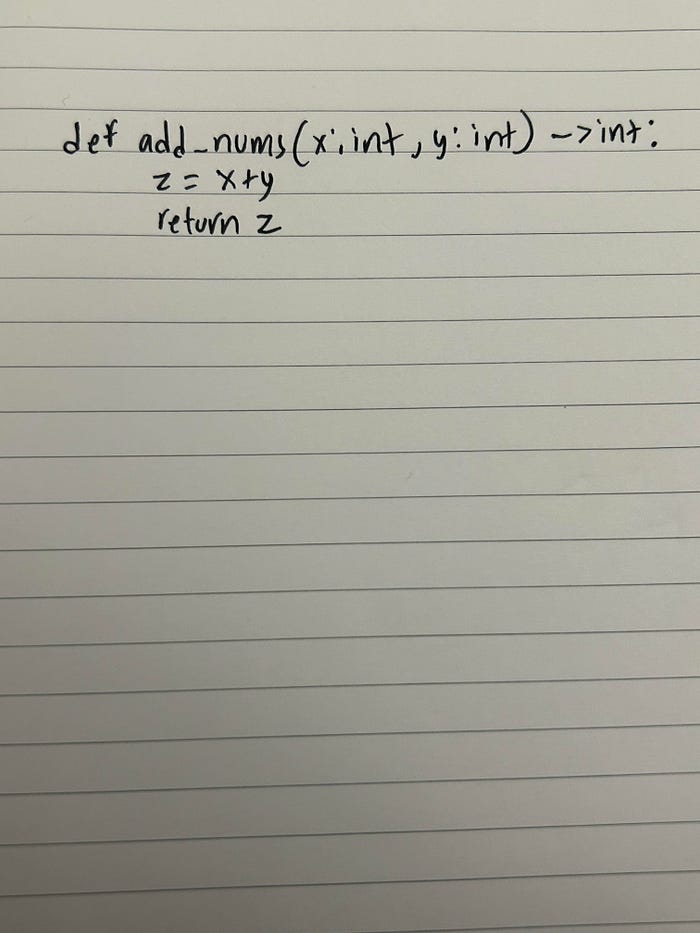 def add_nums(x: int, y: int) -> int:
z = x+y
return z